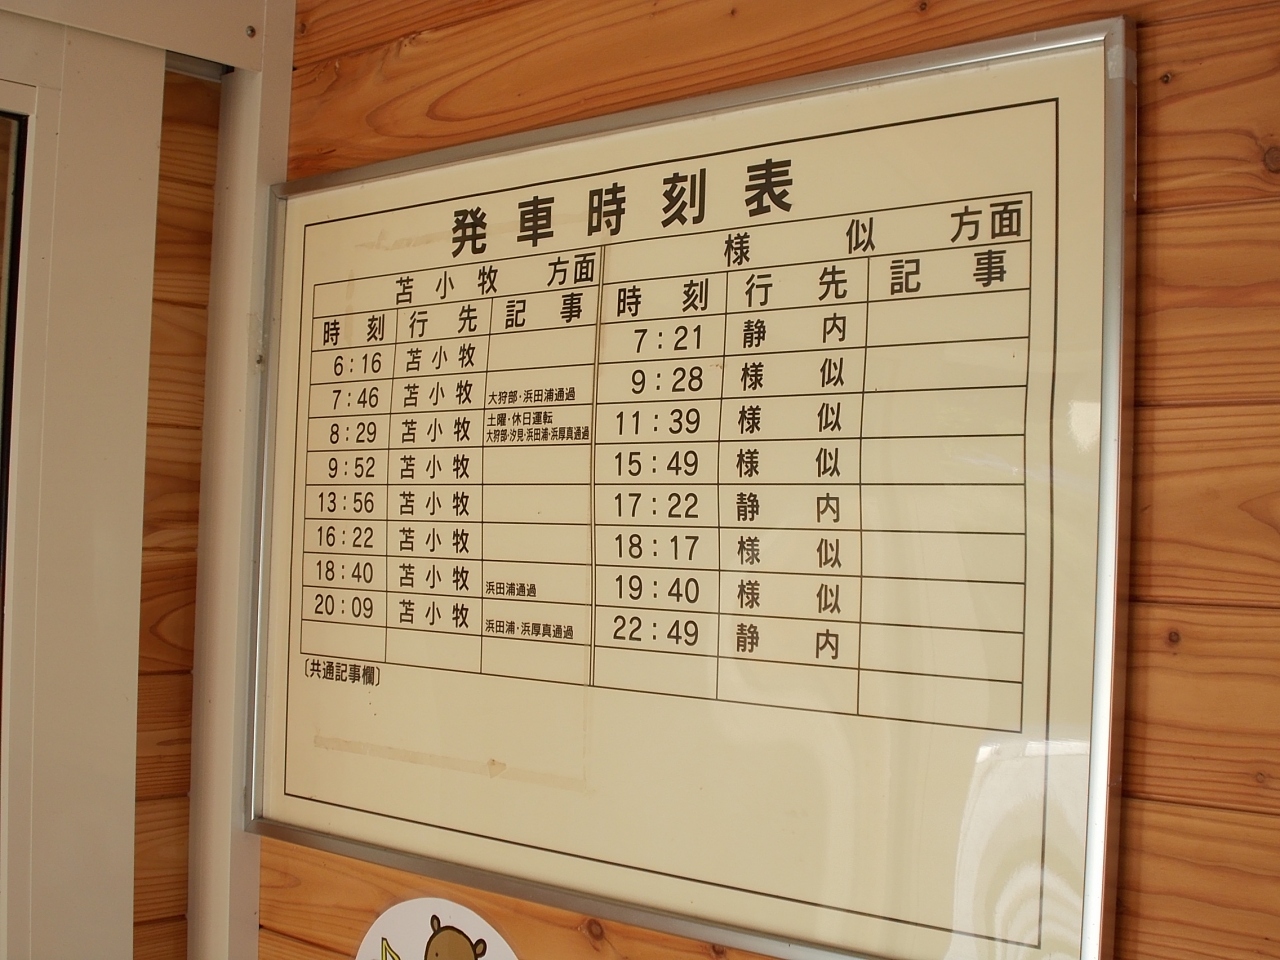 発車時刻表
苫小牧 方面
時刻 行先 記事
6:16 苫小牧
7:46 苫小牧 大狩部・浜田浦通過
8:29 苫小牧 土曜・休日運転
大狩部・汐見・浜田浦・浜厚真通過
9:52 苫小牧
13:56 苫小牧
16:22 苫小牧
18:40 苫小牧 浜田浦通過
20:09 苫小牧 浜田浦・浜厚真通過
様似 方面
時刻 行先 記事
7:21 静内
9:28 様似
11:39 様似
15:49 様似
17:22 静内
18:17 様似
19:40 様似
22:49 静内
〔共通記事欄〕